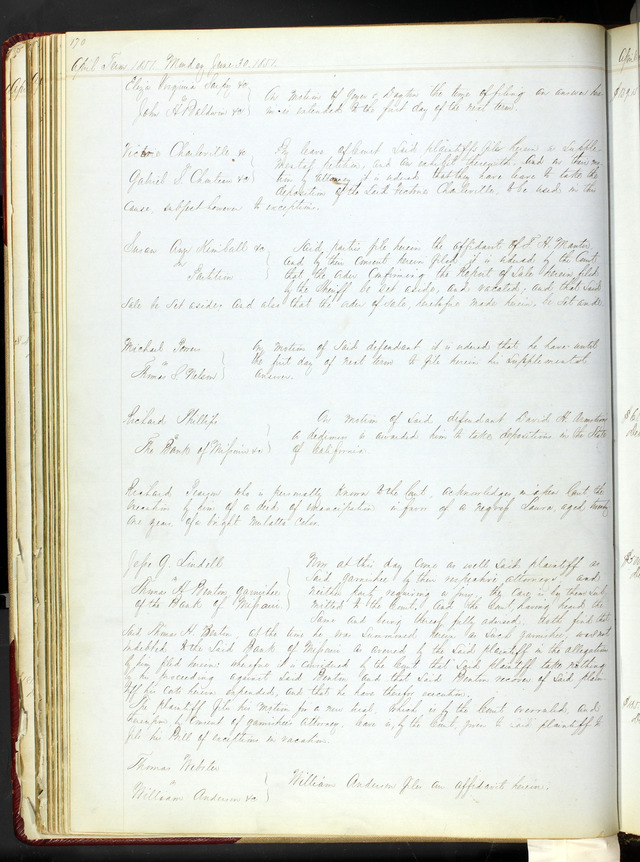 170
April Term 1851. Monday June 30. 1851.
Eliza Virginia &c
vs
John H. Baldwin &c
On motion of & Dayton the time of filing an answer here
in is extended to the first day of the next term.
Victoire Charleville &c
vs
Gabriel S. Chouteau &c
By leave of Court Said plaintiffs file herein a Supple
mental petition, and an exhibit therewith. And on their mo
tion by attorney it is ordered that they have leave to take the
deposition of the Said Charleville, to be used in this
cause, subject however to exceptions.
Susan Ann Kimball &c
vs
Said parties file herein the affidavit of
and by their consent herein filed it is ordered by the Court
that the order Confirming the Report of Sale herein filed
by the Sheriff be set aside, and vacated, and that Said
Sale be set aside; And also that the order of sale, heretofore made herein, be set aside
Michael Power
vs
Thomas S. Nelson
On motion of Said defendant it is ordered that he have until
the first day of next term to file herein his Supplemental
answer.
Richard Phillips
vs
The Bank of Missouri &c
On motion of Said defendant David H. Armstrong
a dedimus is awarded him to take depositions in the State
of California
Richard who is personally known to the Court, acknowledges in open Court, the
execution by him of a deed of emancipation in favor of a negress Laura, aged twenty
one years, of a bright mulatto color.
Jesse G. Lindell
vs
Thomas H. Benton, garnishee
of the Bank of Missouri
Now at this day come as well Said plaintiff as
Said garnishee by their respective attorneys, and
neither party requiring a jury, the case is by them sub
mitted to the Court, And the Court having heard the
same and being thereof fully advised, doth find that
Said Thomas H. Benton, at the time he was Summoned herein as Such garnishee, was not
indebted to the Said Bank of Missouri as averred by the Said plaintiff in the allegations
by him filed herein: wherefore it is considered by the Court that Said plaintiff take nothing
by his proceeding against Said Benton and that Said Benton recover of Said plain
tiff his costs herein expended, and that he have therefor execution.
The plaintiff files his motion for a new trial, which is by the Court overruled, and
thereupon by consent of garnishee's attorney, leave is, by the Court, given to Said plaintiff to
file his Bill of exceptions in vacation.
Thomas Webster
vs
William Anderson &c
William Anderson files an affidavit herein.